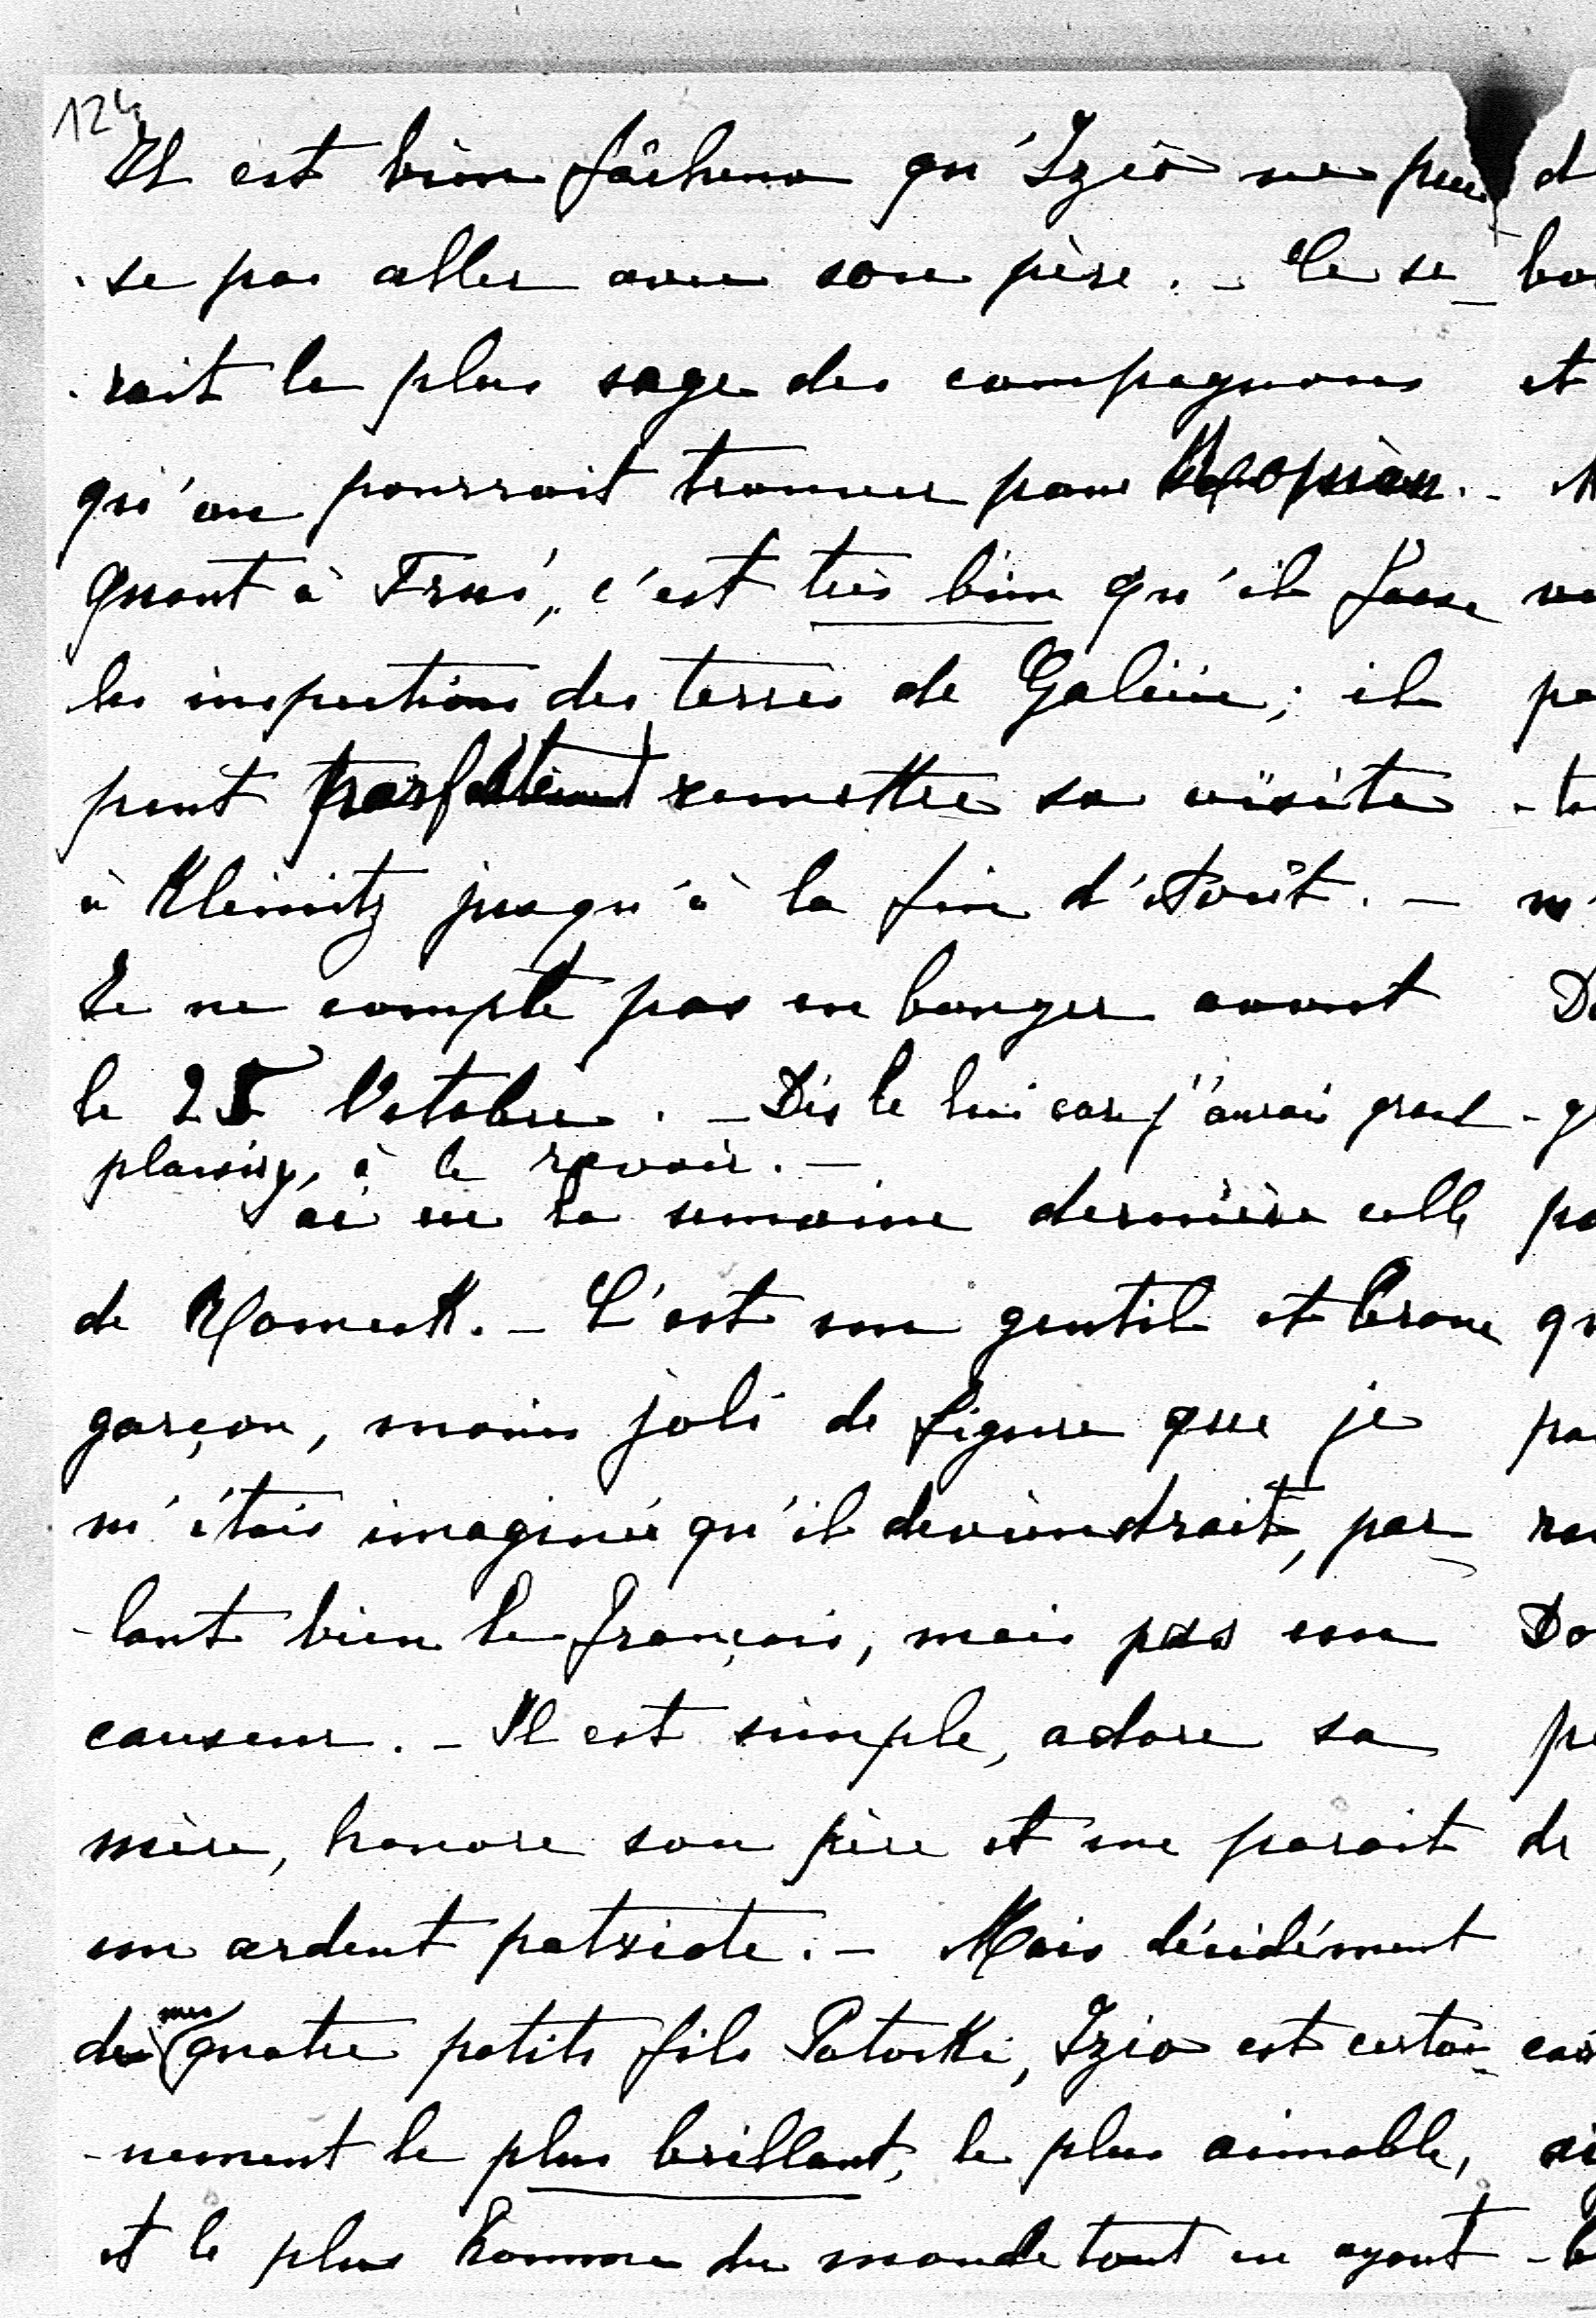 124
Il est bien fâcheux qu'Izio ne puis
-se pas aller avec son père. - Ce se_
-rait le plus sage des compagnons
qu'on pourrait trouver pour
Quant à Frus, c'est très bien qu'il fasse
les inspections des terres de Galicie; il
peut parfaitement remettre sa visite
à Klemnitz jusqu'à la fin d'Août. -
Je ne compte pas en bouger avant
le 25 Octobre. - Dis le lui car j'aurai grand
plaisir, à le revoir. -
J'ai eu la semaine dernière celle
de Romek. - C'est un gentil et brave
garçon, moins joli de figure que je
m'étais imaginé qu'il deviendrait, par_
-lant bien le français, mais pas un
causeur. - Il est simple, adore sa
mère, honore son père et me parait
un ardent patriote. - Mais décidément
de mes quatre petits fils Potocki, Izio est certai_
-nement le plus brillant, le plus aimable,
et le plus homme du monde tout en ayant